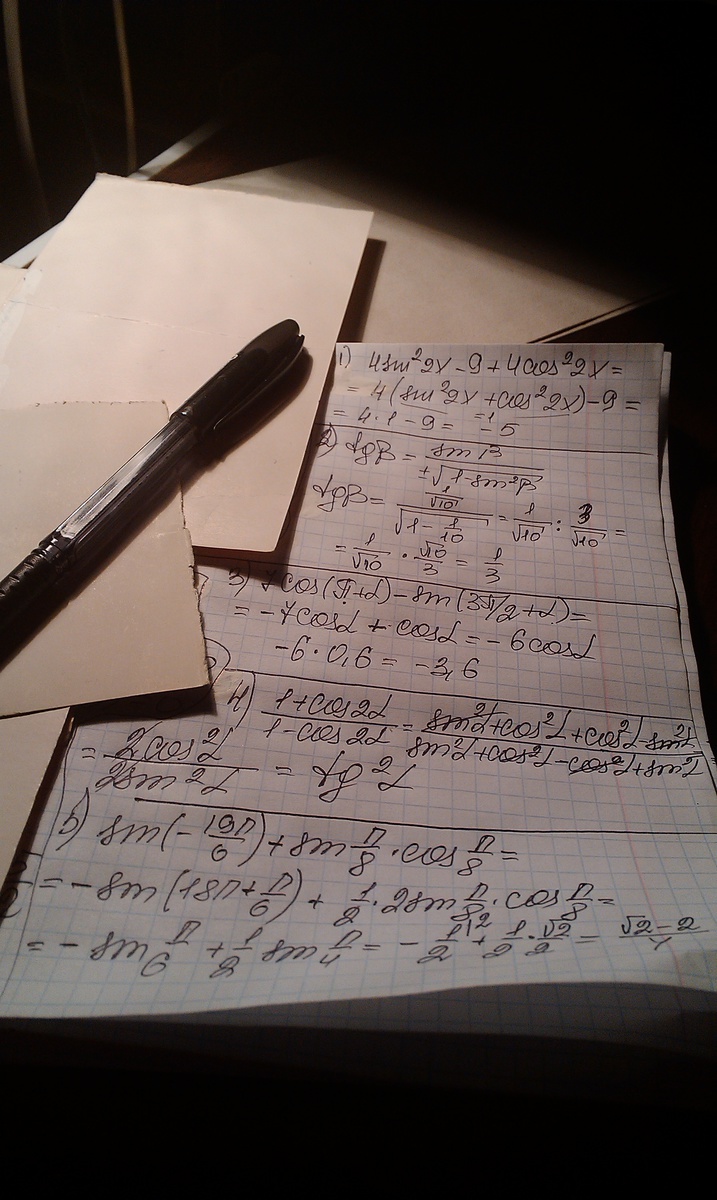 1) 4sin²2x - 9 + 4cos²2x =
= 4(sin²2x + cos²2x) - 9 =
= 4·1 - 9 = -5
2) tgβ = sinβ / ±√(1-sin²β)
tgβ = (1/√10) / √(1 - 1/10) = 1/√10 : 3/√10 =
= 1/√10 · √10/3 = 1/3
3) 7cos(π+α) - sin(3π/2+α) =
= -7cosα + cosα = -6cosα
-6·0,6 = -3,6
4) (1+cos2α)/(1-cos2α) = (sin²α+cos²α+cos²α-sin²α)/(sin²α+cos²α-cos²α+sin²α) =
= 2cos²α / 2sin²α = tg²α
5) sin(-19π/6) + sin π/8 · cos π/8 =
= -sin(18π + π/6) + 1/2 · 2sin π/8 · cos π/8 =
= -sin π/6 + 1/2 sin π/4 = -1/2 + 1/2 · √2/2 = (√2-2)/4